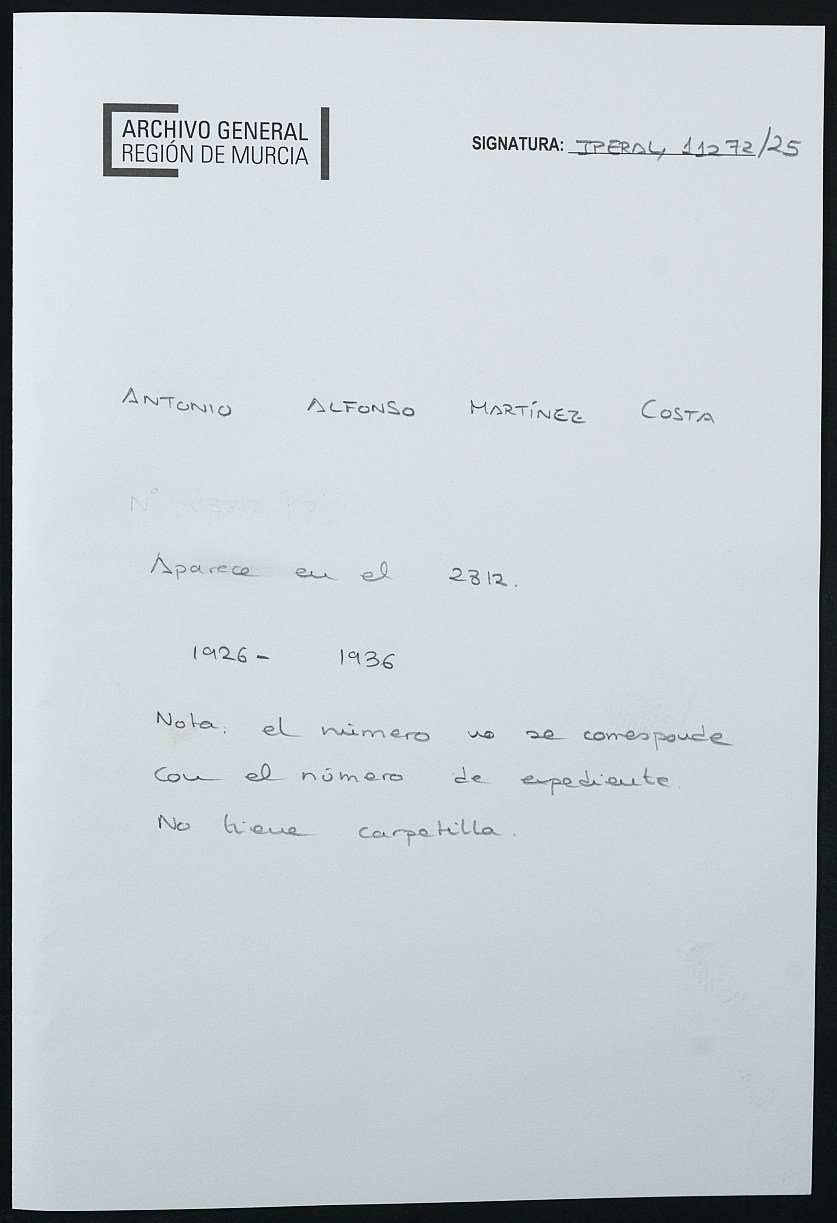 ARCHIVO GENERAL
REGIÓN DE MURCIA
SIGNATURA: IPERAL, 11272/25
ANTONIO ALFONSO MARTÍNEZ COSTA
Nº
Aparece en el 2312.
1926- 1936
Nota: el número no se corresponde
Con el número de expediente.
No tiene carpetilla.